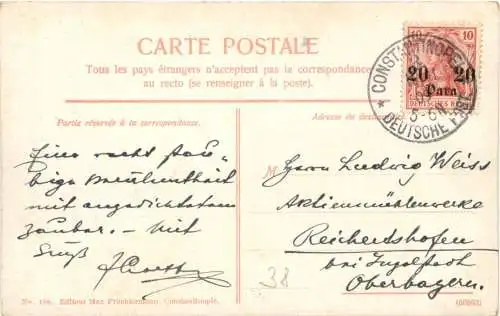 CARTE POSTALE
Tous les pays étrangers n'acceptent pas la correspondance
au recto (se renseigner à la poste).
10 10
20 20
Para
DEUTSCHES REICH
CONSTANTINOPEL
DEUTSCHE POST
Partie réservée à la correspondance.
Adresse du
Eine recht
mit angedichtetem
Zauber. – Mit
Gruß
M Herrn Ludwig Weiss
Aktienmühlenwerke
Reichertshofen
bei Ingolstadt
Oberbayern.
38
No. Editeur Max Fruchtermann, Constantinople.